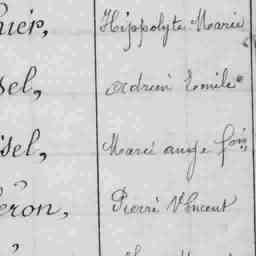 uier, Hippolyte Marie
sel, Adrien Emile
isel, Marie ange fois
éron, Pierre Vincent